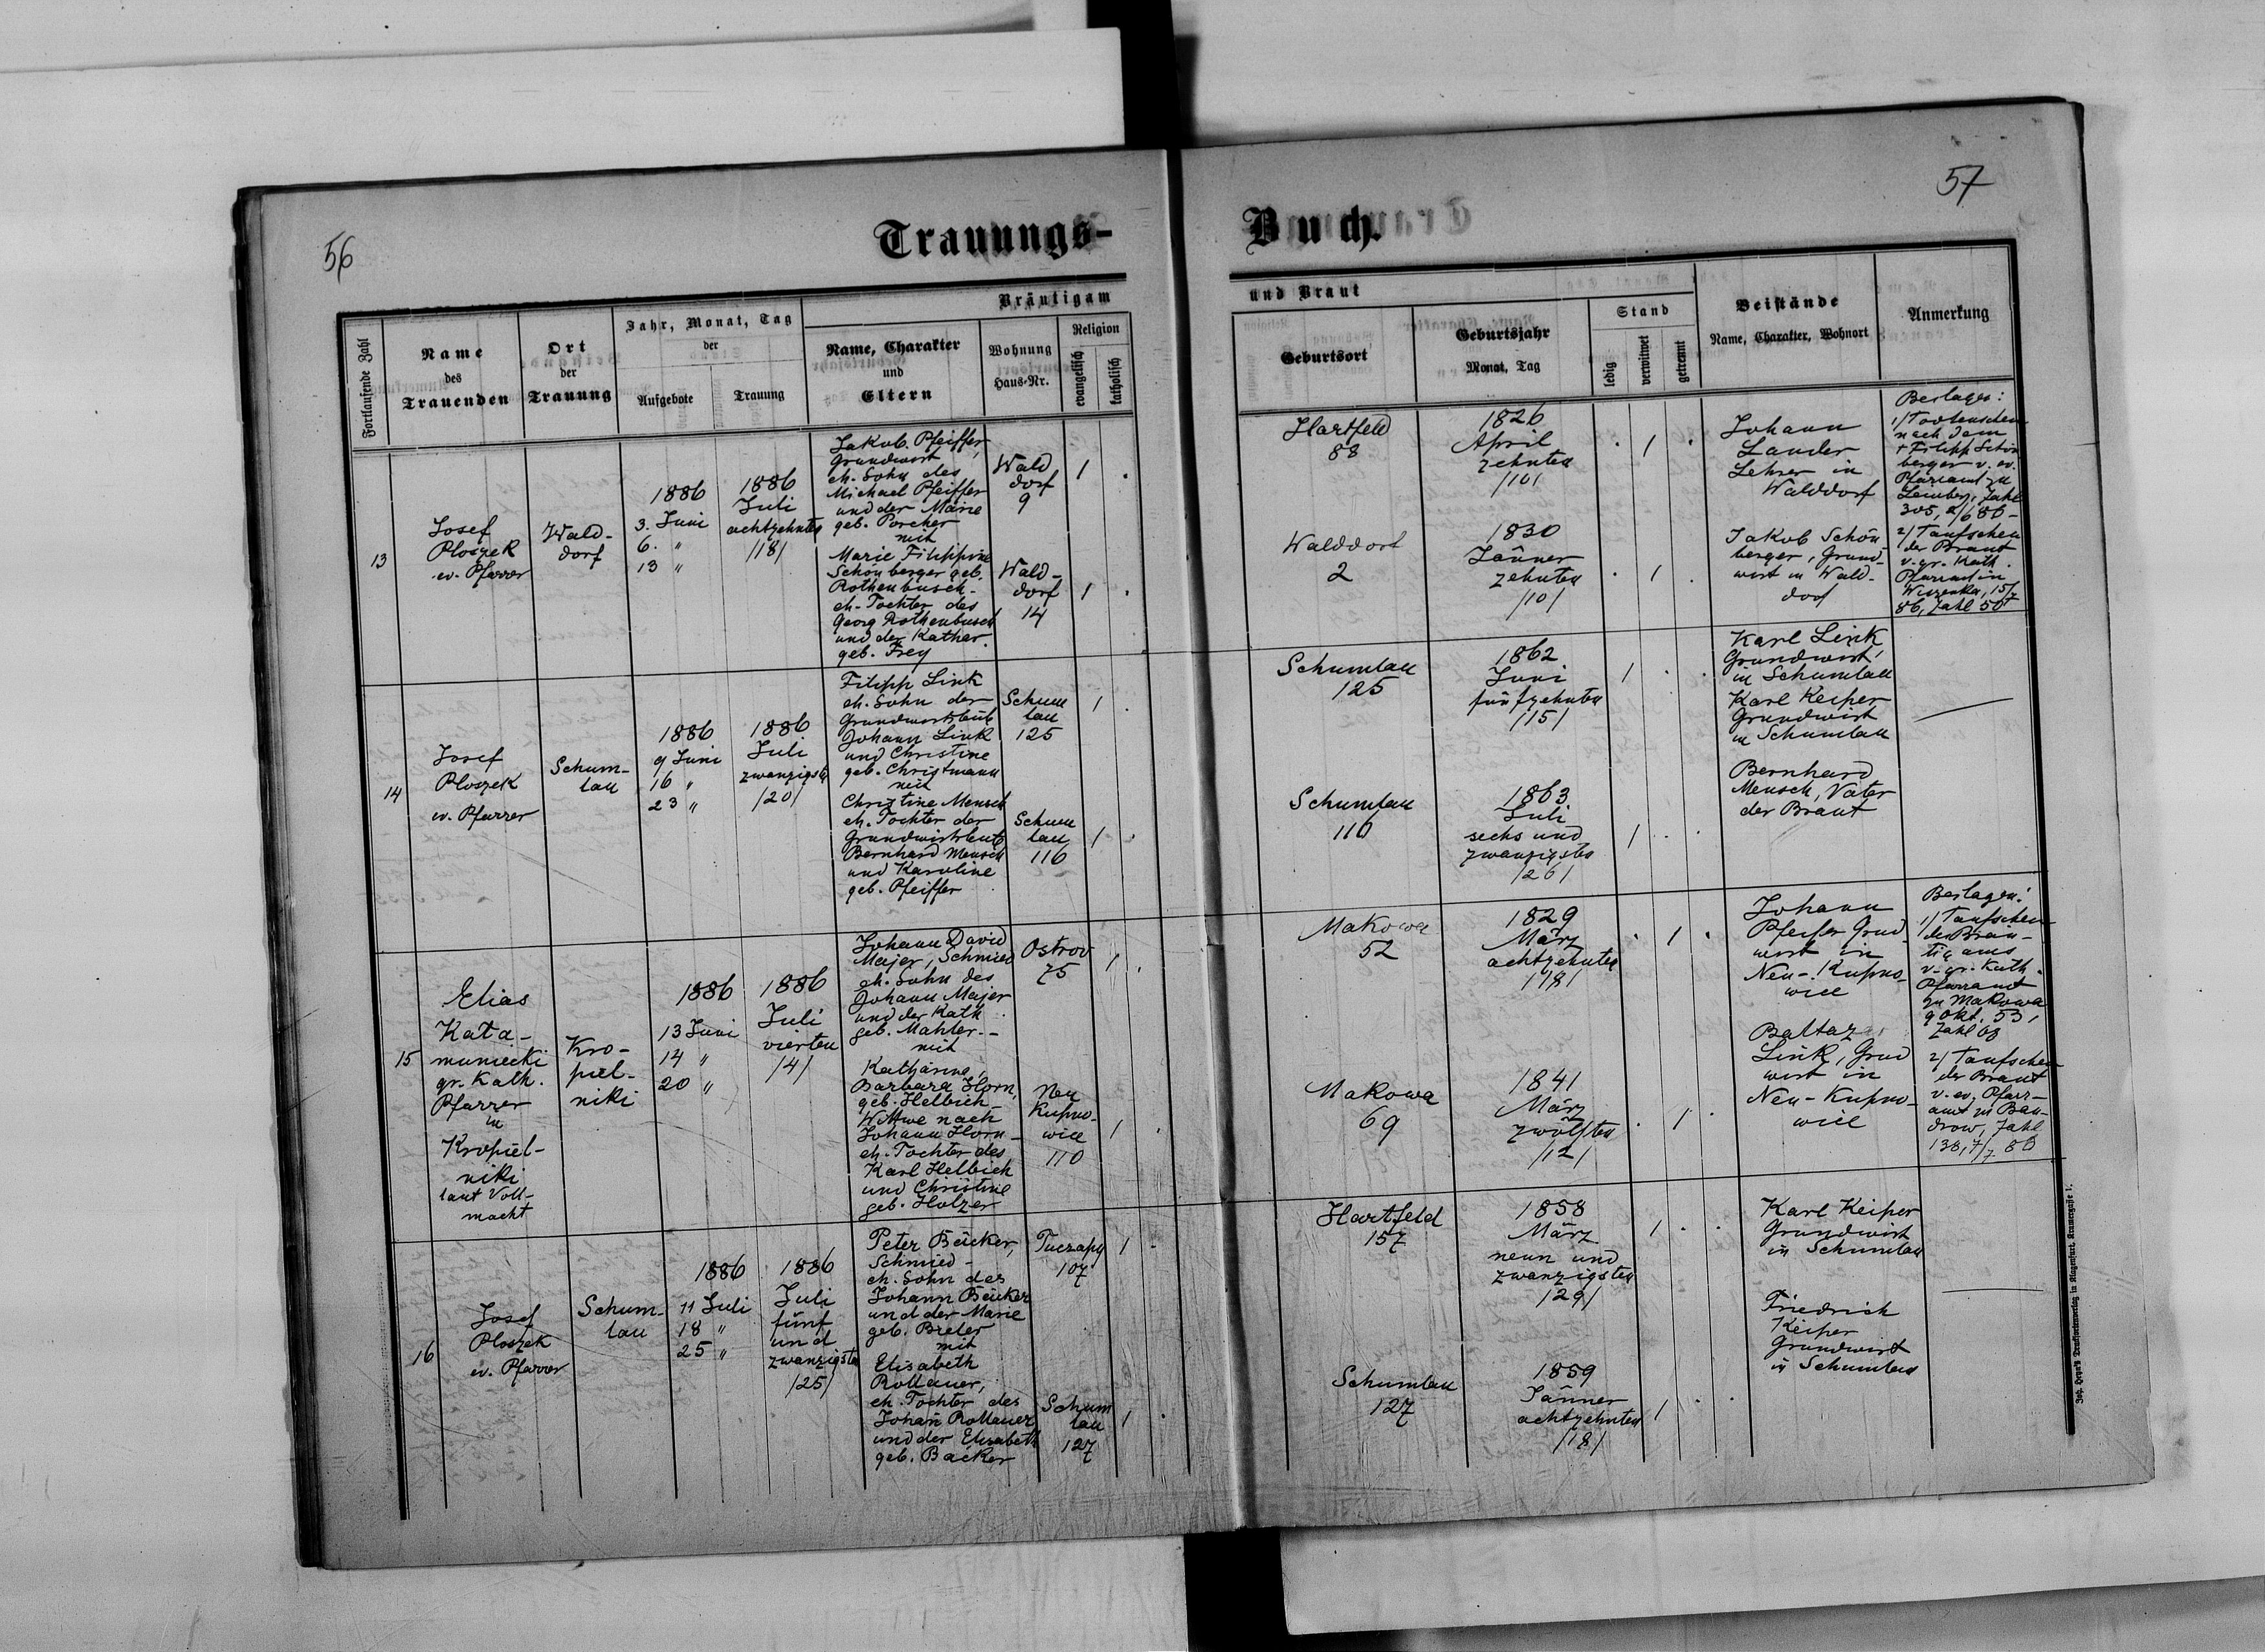 56
57
Trauungs-
Buch.
Fortlaufende Zahl
Name
des
Trauenden
Ort
der
Trauung
Jahr, Monat, Tag
der
Aufgebote
Trauung
Bräutigam
Name, Charakter
und
Eltern
Wohnung
Haus-Nr.
Religion
evangelisch
katholisch
und Braut
Geburtsort
Geburtsjahr
Monat, Tag
Stand
ledig
verwitwet
getrennt
Beistände
Name, Charakter, Wohnort
Anmerkung
13
Josef
Ploszek
ev. Pfarrer
Wald-
dorf
1886
3. Juni
6. "
13 "
1886
Juli
achtzehnten
/18/
Jakob Pfeiffer,
Grundwirt,
eh. Sohn des
Michael Pfeiffer
und der Marie
geb. Porcher
mit
Marie Filippine
Schönberger geb.
Rothenbusch-
eh. Tochter des
Georg Rothenbusch
und der Kathar.
geb. Frey
Wald
dorf
9
Wald-
dorf
14
1
1
Hartfeld
88
Walddorf
2
1826
April
zehnten
/10/
1830
Jänner
zehnten
/10/
1
1
Johann
Lander
Lehrer in
Walddorf
Jakob Schön
berger, Grund-
wirt in Wald-
dorf
Beilagen:
1/ Todtenschein
nach dem
+ Filipp Schön
berger v. ev.
Pfarramt zu
Lemberg, Zahl
305, 2/6 86-
2/ Taufschein
der Braut
v. gr. Kath.
Pfarramt in
Wiszenka, 15/7
86, Zahl 50
14
Josef
Ploszek
ev. Pfarrer
Schum-
lau
1886
9 Juni
16 "
23 "
1886
Juli
zwanzigsten
/20/
Filipp Link
eh. Sohn der
Grundwirtsleute
Johann Link
und Christine
geb. Christmann
mit
Christine Mensch
eh. Tochter der
Grundwirtsleute
Bernhard Mensch
und Karoline
geb. Pfeiffer
Schum
lau
125
Schum
lau
116
1
1
Schumlau
125
Schumlau
116
1862
Juni
fünfzehnten
/15/
1863
Juli
sechs und
zwanzigsten
/26/
1
1
Karl Link,
Grundwirt,
in Schumlau
Karl Keiper
Grundwirt
in Schumlau
Bernhard
Mensch, Vater
der Braut
15
Elias
Kata-
muniecki
gr. Kath.
Pfarrer
in
Kropiel-
niki
laut Voll-
macht
Kro-
piel-
niki
1886
13 Juni
14 "
20 "
1886
Juli
vierten
/4/
Johann David
Majer, Schmied
eh. Sohn des
Johann Majer
und der Kath
geb. Mahler.-
mit
Katharina,
Barbara Horn,
geb. Helbich
Wittwe nach
Johann Horn-
eh. Tochter des
Karl Helbich
und Christine
geb. Holzer
Ostrov
75
Neu
Kupno-
wice
110
1
1
Makowa
52
Makowa
69
1829
März
achtzehnten
/18/
1841
März
zwölften
/12/
1
1
Johann
Pfeifer Grund
wirt in
Neu-Kupno-
wice
Baltazar
Link, Grund
wirt in
Neu-Kupno-
wice
Beilagen:
1/ Taufschein
des Bräu-
tigams
v. gr. Kath.
Pfarramt
zu Makowa
9 Okt. 53,
Zahl 68
2/ Taufschein
der Braut
v. ev. Pfarr-
amt zu Ban-
drow, Zahl
138, 7/7 86
16
Josef
Ploszek
ev. Pfarrer
Schum-
lau
1886
11 Juli
18 "
25 "
1886
Juli
fünf
und
zwanzigsten
/25/
Peter Beuker,
Schmied-
eh. Sohn des
Johann Beuker
und der Marie
geb. Bieler
mit
Elisabeth
Rollauer,
eh. Tochter des
Johan Rollauer
und der Elisabeth
geb. Bäcker
Tuczapy
107
Schum
lau
127
1
1
Hartfeld
157
Schumlau
127
1858
März
neun und
zwanzigsten
/29/
1859
Jänner
achtzehnten
/18/
1
1
Karl Keiper
Grundwirt
in Schumlau
Friedrich
Keiper
Grundwirt
in Schumlau
Joh. Heyn's Drucksortenverlag in Klagenfurt, Kramergasse 1.